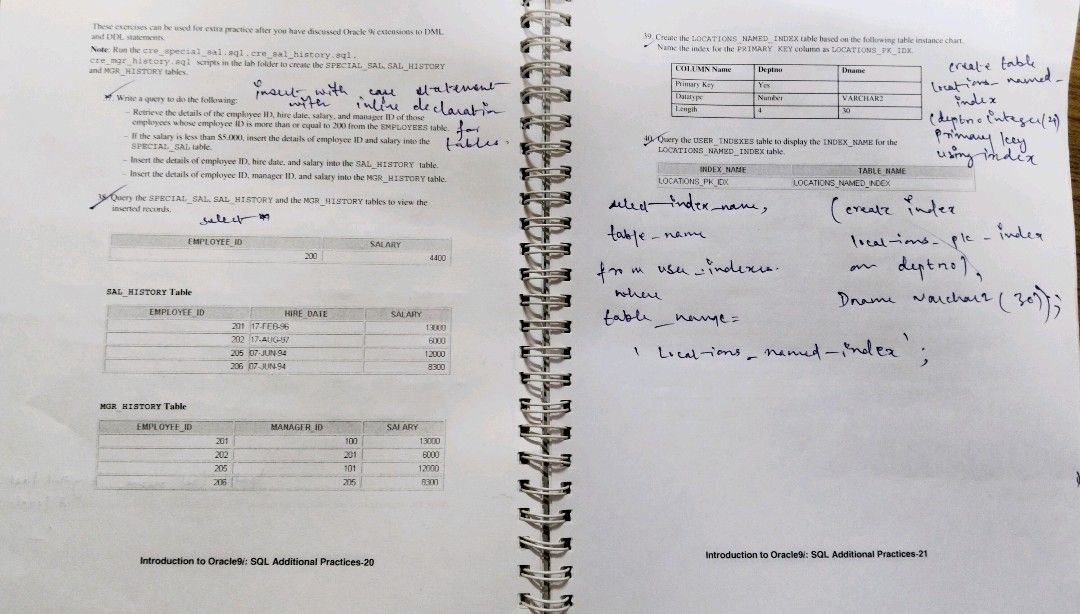 These exercises can be used for extra practice after you have discussed Oracle 9i extensions to DML
and DDL statements.
Note: Run the cre_special_sal.sql, cre_sal_history.sql,
cre_mgr_history.sql scripts in the lab folder to create the SPECIAL_SAL, SAL_HISTORY
and MGR_HISTORY tables.
insert with case statement
with inline declaration
for
tables.
37. Write a query to do the following:
- Retrieve the details of the employee ID, hire date, salary, and manager ID of those
employees whose employee ID is more than or equal to 200 from the EMPLOYEES table.
- If the salary is less than $5,000, insert the details of employee ID and salary into the
SPECIAL_SAL table.
- Insert the details of employee ID, hire date, and salary into the SAL_HISTORY table.
- Insert the details of employee ID, manager ID, and salary into the MGR_HISTORY table.
38. Query the SPECIAL_SAL, SAL_HISTORY and the MGR_HISTORY tables to view the
inserted records.
select *
EMPLOYEE_ID SALARY
200 4400
SAL_HISTORY Table
EMPLOYEE_ID HIRE_DATE SALARY
201 17-FEB-96 13000
202 17-AUG-97 6000
205 07-JUN-94 12000
206 07-JUN-94 8300
MGR_HISTORY Table
EMPLOYEE_ID MANAGER_ID SALARY
201 100 13000
202 201 6000
205 101 12000
206 205 8300
Introduction to Oracle9i: SQL Additional Practices-20
39. Create the LOCATIONS_NAMED_INDEX table based on the following table instance chart.
Name the index for the PRIMARY KEY column as LOCATIONS_PK_IDX.
COLUMN Name Deptno Dname
Primary Key Yes
Datatype Number VARCHAR2
Length 4 30
create table
locations_named_
index
(deptno integer(4)
primary key
using index
40. Query the USER_INDEXES table to display the INDEX_NAME for the
LOCATIONS_NAMED_INDEX table.
INDEX_NAME TABLE_NAME
LOCATIONS_PK_IDX LOCATIONS_NAMED_INDEX
select index_name,
table_name
from user_indexes.
where
table_name=
'Locations_named_index';
(create index
locations_pk_index
on deptno),
Dname varchar2(30));
Introduction to Oracle9i: SQL Additional Practices-21